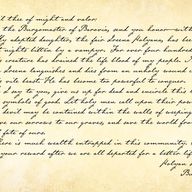 l thee of might and valor:
the Burgomaster of Barovia, and you honor with
ly adopted daughter, the fair Ireena Kolyana, has
t nights bitten by a vampyr. For over four hundred
s creature has drained the life blood of my people.
Ireena languishes and dies from an unholy wound
vile beast. He has become too powerful to conquer.
I say to you, give us up for dead and encircle this
symbols of good. Let holy men call upon their power
devil may be contained within the walls of weeping
our sorrows to our graves, and save the world from
l fate of ours.
ere is much wealth entrapped in this community.
your reward after we are all departed for a better
Kolyan